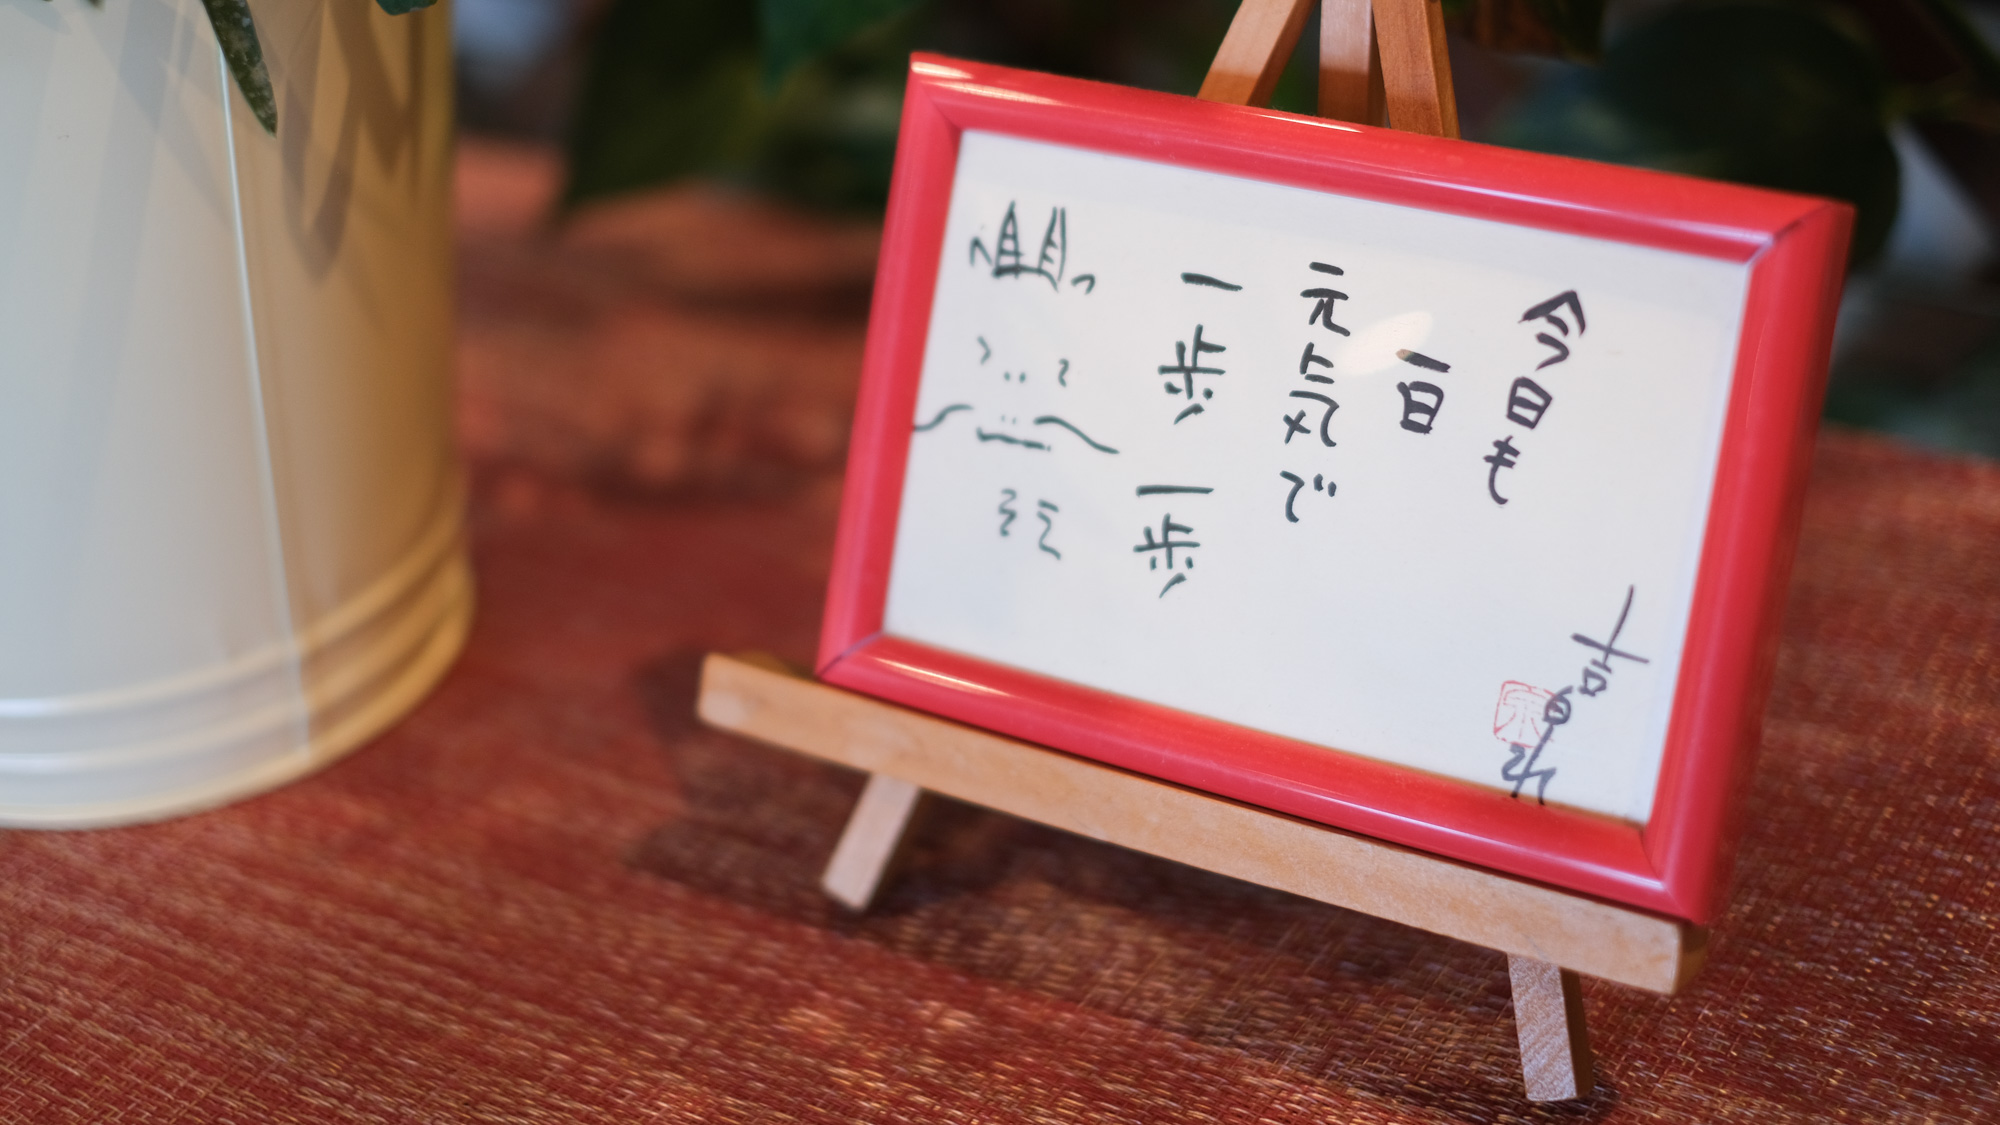 今日も
一日
元気で
一歩一歩